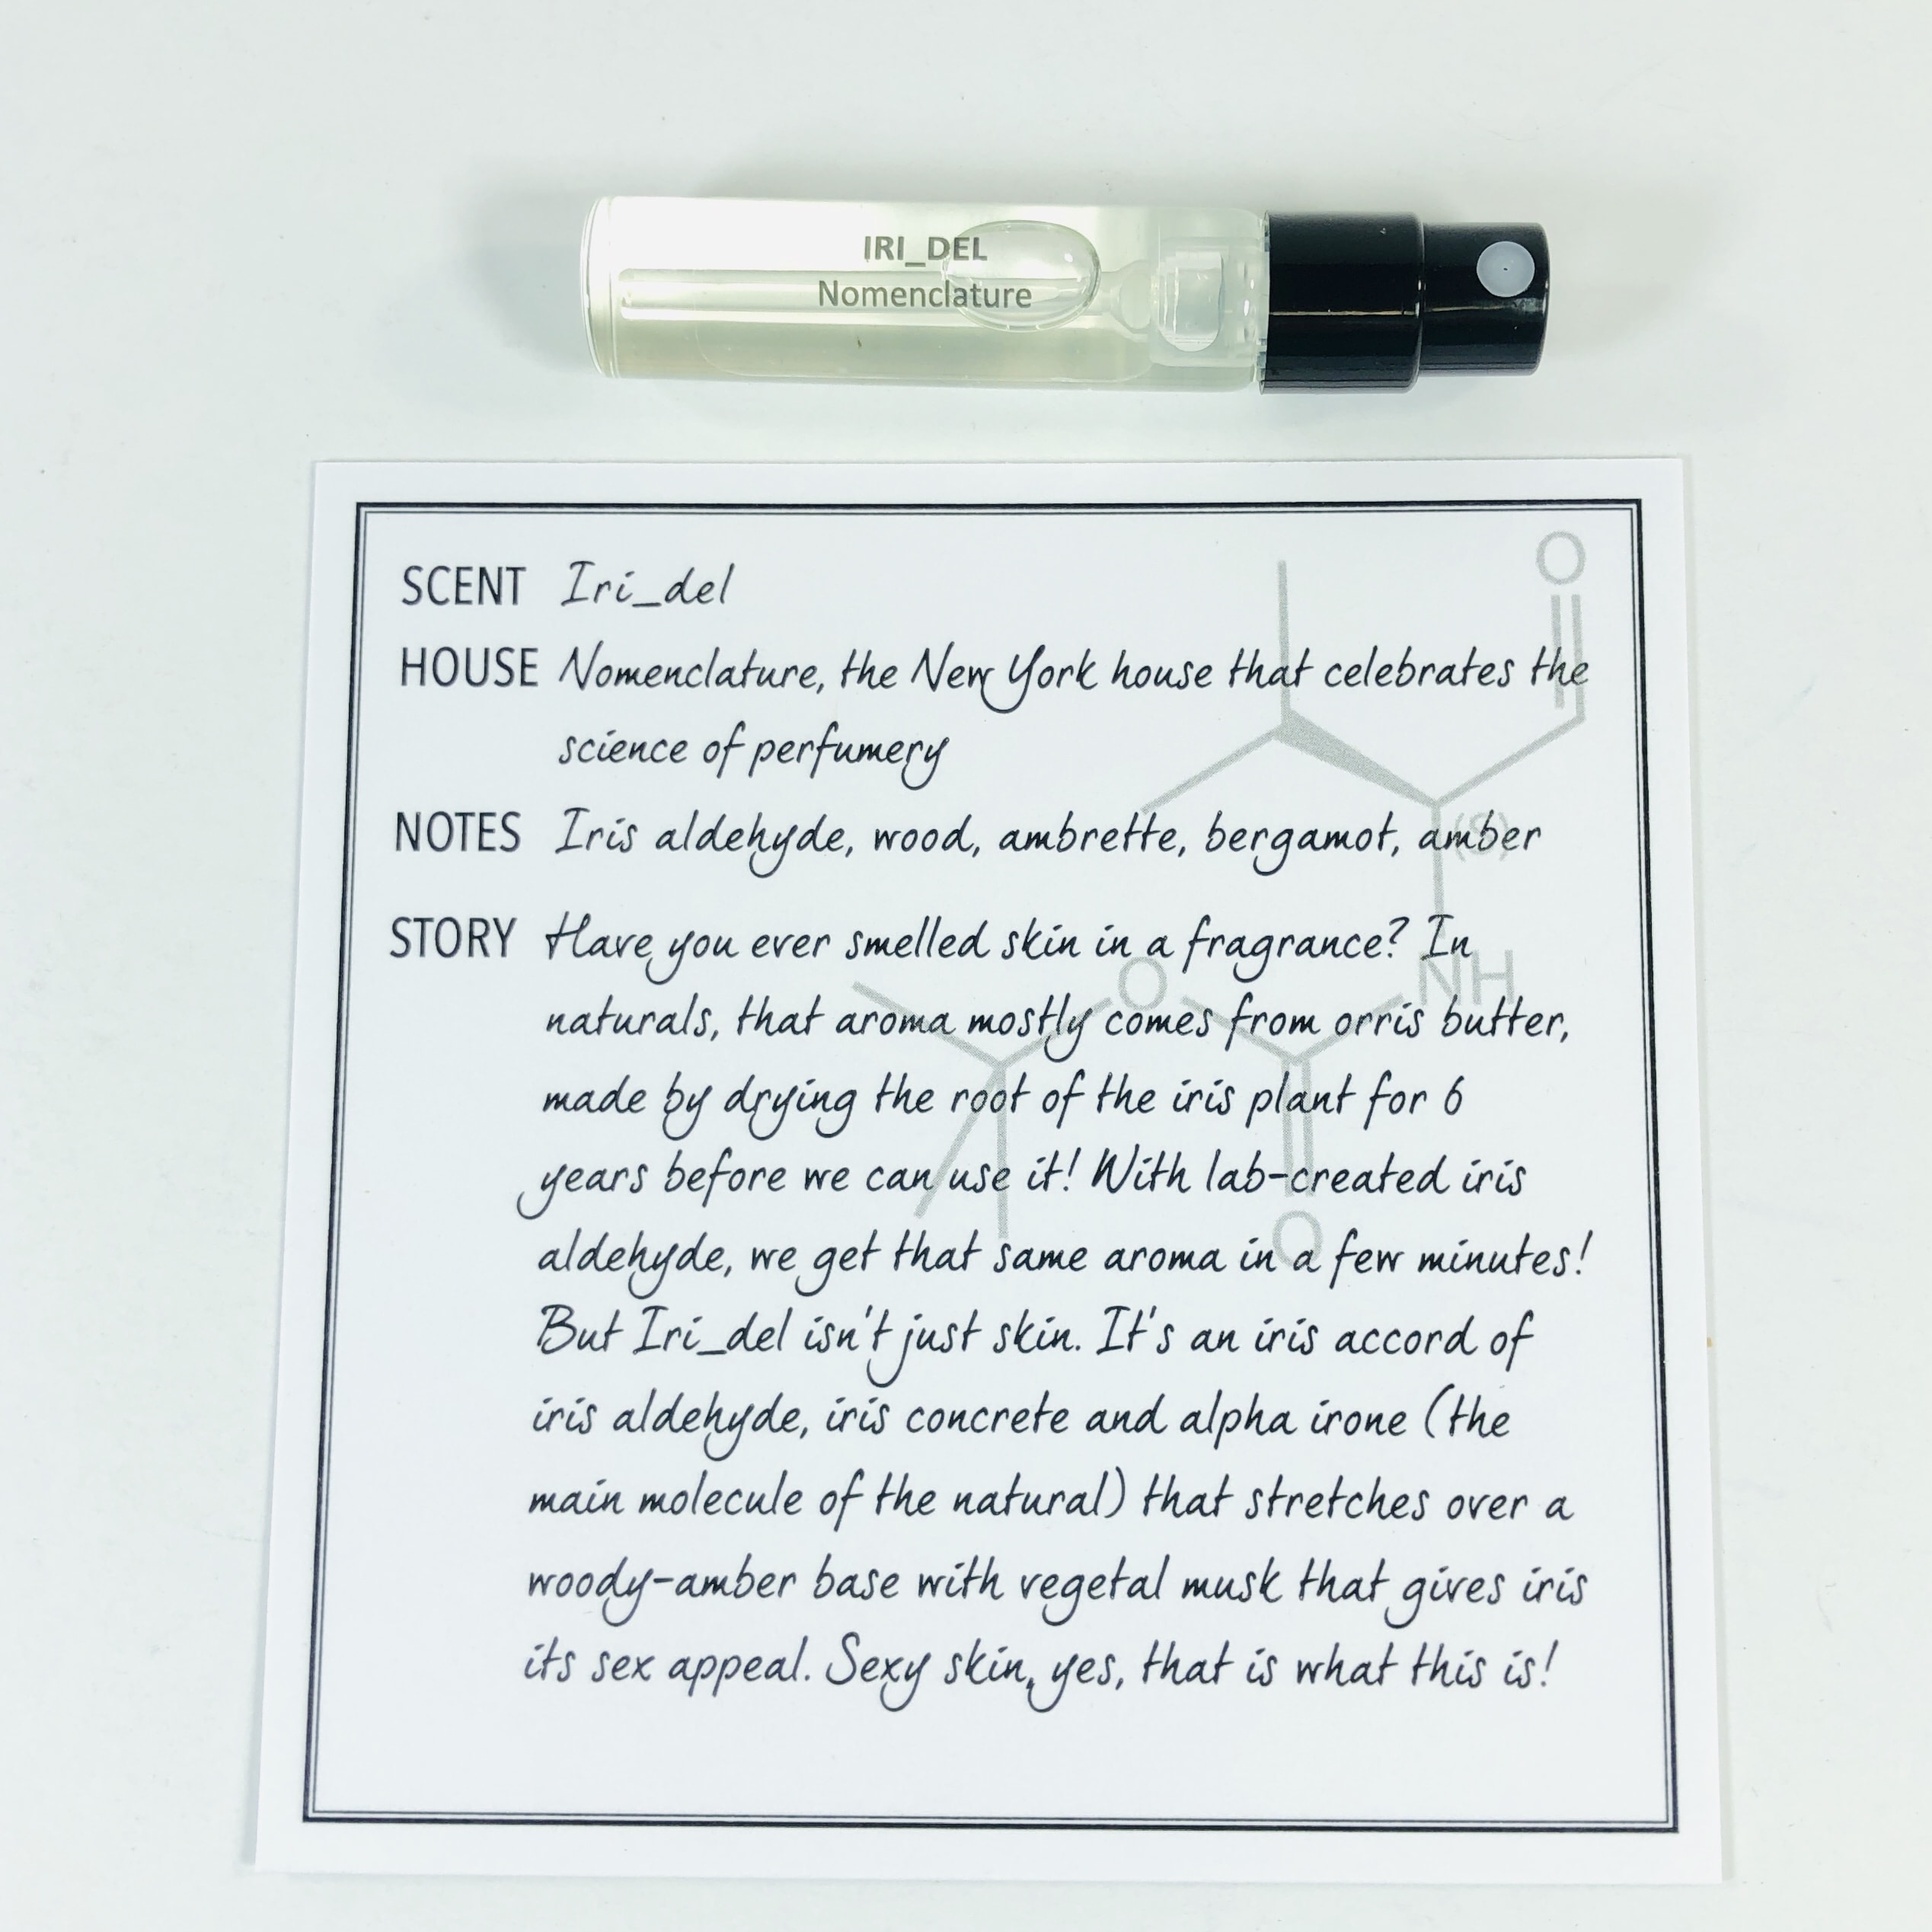 IRI_DEL
Nomenclature
SCENT Iri_del
HOUSE Nomenclature, the New York house that celebrates the
science of perfumery
NOTES Iris aldehyde, wood, ambrette, bergamot, amber
STORY Have you ever smelled skin in a fragrance? In
naturals, that aroma mostly comes from orris butter,
made by drying the root of the iris plant for 6
years before we can use it! With lab-created iris
aldehyde, we get that same aroma in a few minutes!
But Iri_del isn't just skin. It's an iris accord of
iris aldehyde, iris concrete and alpha irone (the
main molecule of the natural) that stretches over a
woody-amber base with vegetal musk that gives iris
its sex appeal. Sexy skin, yes, that is what this is!
O
(S)
NH
O
O